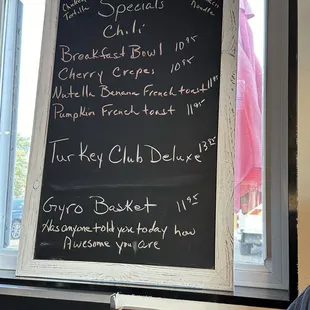 Specials
Tortilla
Noodle
Chili
Breakfast Bowl 10.95
Cherry Crepes 10.95
Nutella Banana French toast 11.95
Pumpkin French toast 11.95
Turkey Club Deluxe 13.95
Gyro Basket 11.95
Has anyone told you today how
Awesome you are